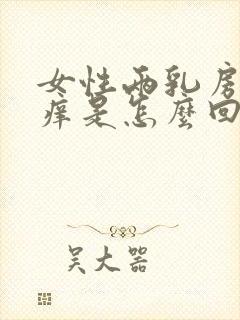 女性两乳房
痒是怎麼回
吴大器